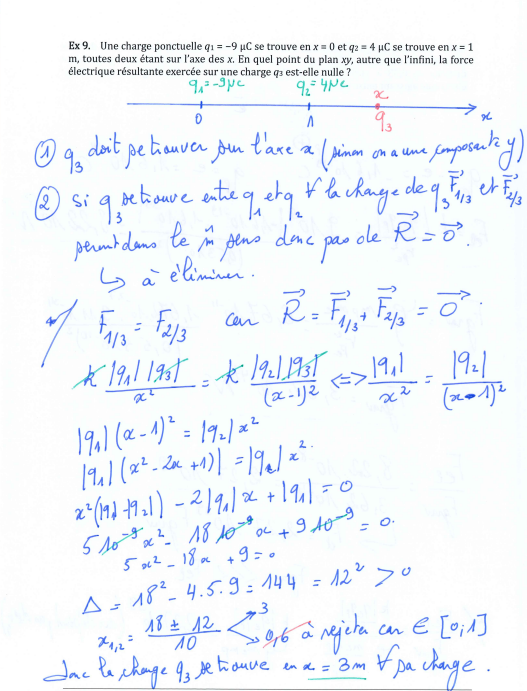 Ex 9. Une charge ponctuelle q₁ = −9 µC se trouve en x = 0 et q₂ = 4 µC se trouve en x = 1
m, toutes deux étant sur l'axe des x. En quel point du plan xy, autre que l'infini, la force
électrique résultante exercée sur une charge q₃ est-elle nulle ?
q₁=-9µc q₂=4µc x
0 1 q₃ x
① q₃ doit se trouver sur l'axe x (sinon on a une composante y)
② Si q₃ se trouve entre q₁ et q₂ ∀ la charge de q₃ F⃗₁/₃ et F⃗₂/₃
seront dans le m̂ sens donc pas de R⃗ = 0⃗.
↳ à éliminer.
F₁/₃ = F₂/₃ car R⃗ = F⃗₁/₃ + F⃗₂/₃ = 0⃗.
k |q₁| |q₃| / x² = k |q₂| |q₃| / (x-1)² <=> |q₁| / x² = |q₂| / (x-1)²
|q₁| (x-1)² = |q₂| x²
|q₁| (x² - 2x + 1) = |q₂| x².
x² (|q₁| - |q₂|) - 2|q₁| x + |q₁| = 0
5 10⁻⁹ x² - 18 10⁻⁹ x + 9 10⁻⁹ = 0.
5x² - 18x + 9 = 0
Δ = 18² - 4.5.9 = 144 = 12² > 0
x₁,₂ = (18 ± 12) / 10 3
0,6 à rejeter car ∈ [0;1]
Donc la charge q₃ se trouve en x = 3m ∀ sa charge.